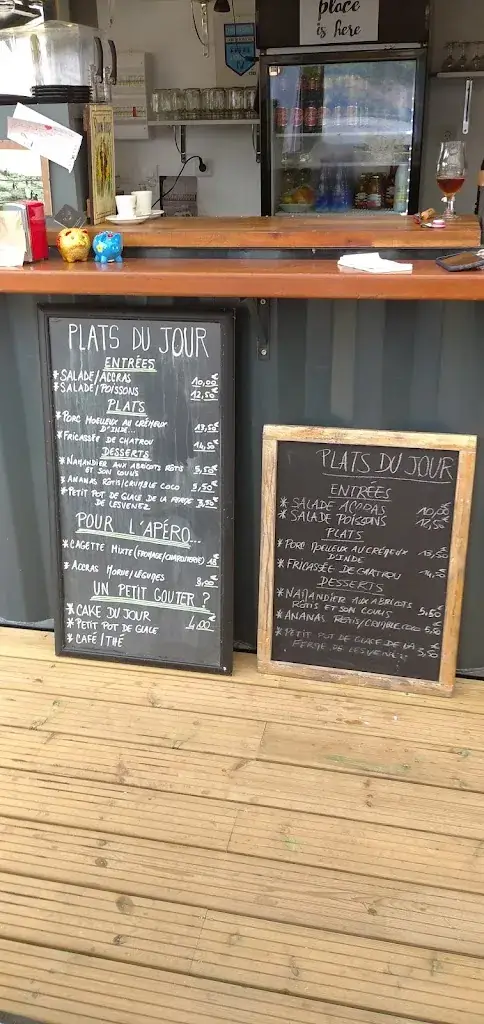 place
is here
PLATS DU JOUR
ENTRÉES
* SALADE/ACCRAS 10,00€
* SALADE/POISSONS 12,50€
PLATS
* PORC MOELLEUX AU CRÉMEUX
D'INDE... 13,50€
* FRICASSÉE DE CHATROU 14,50€
DESSERTS
* NAMANDIER AUX ABRICOTS RÔTIS
ET SON COULIS 5,50€
* ANANAS RÔTIS/CRUMBLE COCO 5,50€
* PETIT POT DE GLACE DE LA FERME
DE LESVENEZ 3,50€
POUR L'APÉRO...
* CAGETTE MIXTE (FROMAGE/CHARCUTERIE) 18€
* ACCRAS MORUE/LÉGUMES 8,00€
UN PETIT GOUTER ?
* CAKE DU JOUR 4,00€
* PETIT POT DE GLACE
* CAFÉ/THÉ
PLATS DU JOUR
ENTRÉES
* SALADE ACCRAS 10,00€
* SALADE POISSONS 12,50€
PLATS
* PORC MOELLEUX AU CRÉMEUX
D'INDE 13,50€
* FRICASSÉE DE CHATROU 14,50€
DESSERTS
* NAMANDIER AUX ABRICOTS
RÔTIS ET SON COULIS 5,50€
* ANANAS RÔTIS/CRUMBLE COCO 5,50€
* PETIT POT DE GLACE DE LA
FERME DE LESVENEZ 3,50€